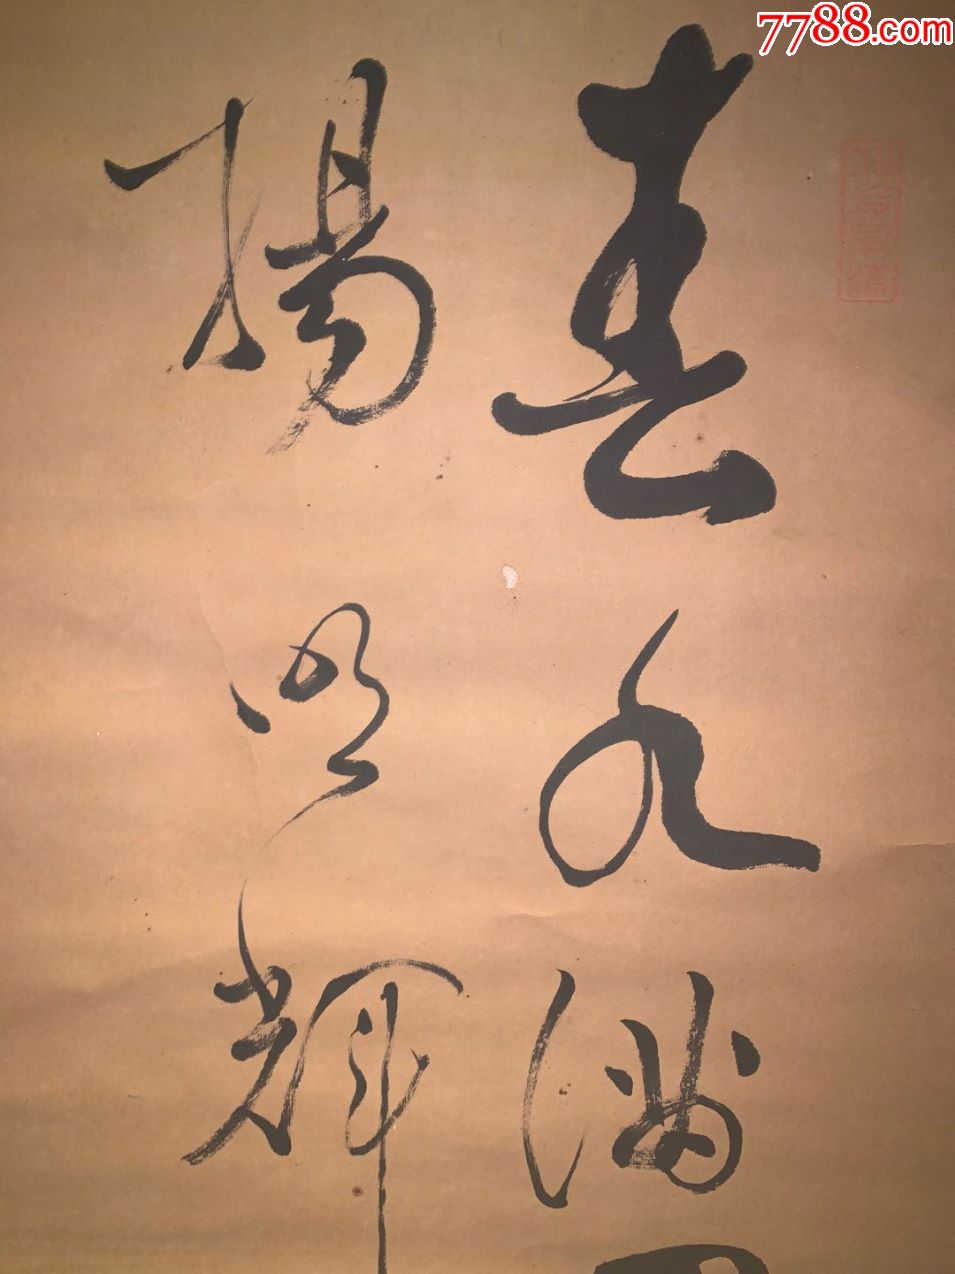 7788.com
春水滿四
揚明輝